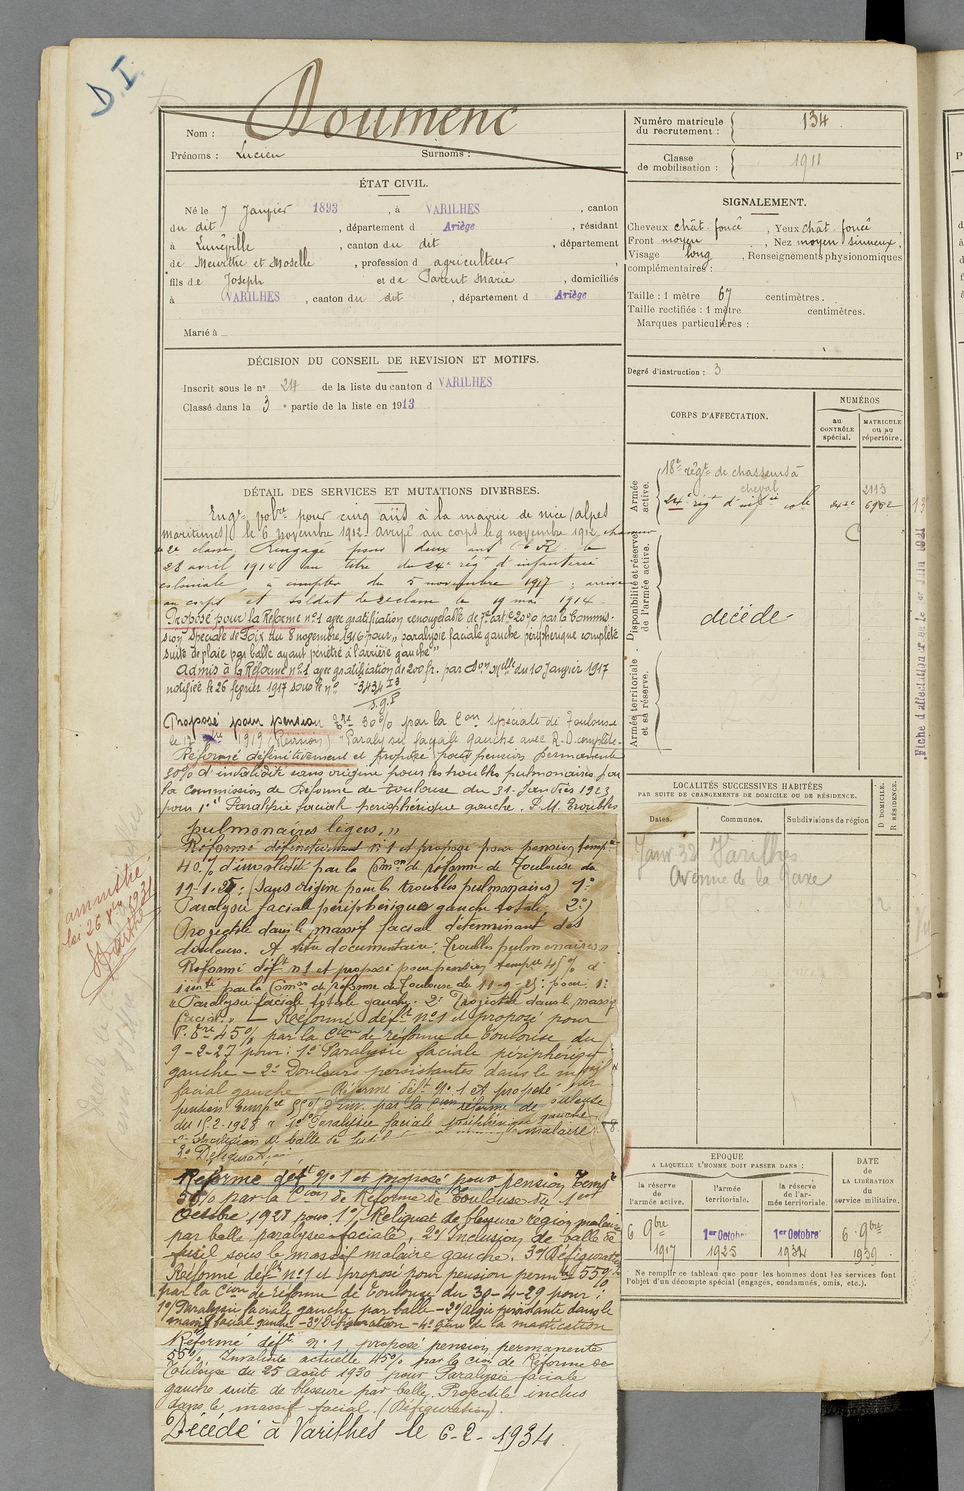 D.I.
Nom : Doumenc
Prénoms : Lucien Surnoms :
Numéro matricule du recrutement : 134
Classe de mobilisation : 1911
ÉTAT CIVIL.
Né le 7 Janvier 1893, à VARILHES, canton
du dit, département d Ariège, résidant
à Lunéville, canton du dit, département
de Meurthe et Moselle, profession d agriculteur
fils de Joseph et de Parent Marie, domiciliés
à VARILHES, canton du dit, département d Ariège
Marié à
SIGNALEMENT.
Cheveux chât. foncé, Yeux chât. foncé,
Front moyen, Nez moyen sinueux,
Visage long, Renseignements physionomiques
complémentaires :
Taille : 1 mètre 67 centimètres.
Taille rectifiée : 1 mètre centimètres.
Marques particulières :
Degré d'instruction : 3
DÉCISION DU CONSEIL DE REVISION ET MOTIFS.
Inscrit sous le n° 24 de la liste du canton d VARILHES
Classé dans la 3e partie de la liste en 1913
DÉTAIL DES SERVICES ET MUTATIONS DIVERSES.
Engt volre pour cinq ans à la mairie de nice (alpes
maritimes) le 6 novembre 1912 arrivé au corps le 9 novembre 1912, chasseur
de 2e classe, Rengagé pour deux ans le
28 avril 1914 au titre du 24e régt d'infanterie
coloniale à compter du 5 novembre 1917 : arrivé
au corps et soldat de 2e classe le 19 mai 1914
Proposé pour la Réforme n°1 avec gratification renouvelable de 20% par la Commis-
sion Spéciale de Foix du 8 novembre 1916 pour "paralysie faciale gauche périphérique complète
suite de plaie par balle ayant pénétré à l'arrière gauche"
Admis à la Réforme n°1 avec gratification de 200 fr. par Don Mlle du 10 Janvier 1917
notifiée le 26 février 1917 sous le n° 3434
Proposé pour pension 30% par la Con spéciale de Toulouse
le 1919 (Réunion) "Paralysie faciale gauche avec R.D. complète.
Réformé définitivement et proposé pour pension permanente
d'invalidité sans origine pour les troubles pulmonaires par
la Commission de Réforme de Toulouse du 31 Janvier 1923
pour 1° Paralysie faciale périphérique gauche. Troubles
pulmonaires légers."
Réformé définitivement n°1 et proposé pour pension tempre
40% d'invalidité par la Comon de réforme de Toulouse du
(sans origine pour les troubles pulmonaires) 1°
Paralysie faciale périphérique gauche totale 2°)
Projectile dans le massif facial déterminant des
douleurs. A titre documentaire : Troubles pulmonaires"
Réformé déft n°1 et proposé pour pension tempre 45% d'
par la Comon de réforme de Toulouse du 11-9-25 pour 1°
"Paralysie faciale totale gauche. 2° Projectile dans le massif
facial" — Réformé déft n°1 et proposé pour
P. tre 45% par la Cion de réforme de Toulouse du
9-2-27 pour : 1° Paralysie faciale périphérique
gauche — 2° Douleurs persistantes dans le massif
facial gauche — Réformé déft n° 1 et proposé pour
pension tempre 55% d'inv. par la Cion réforme de Toulouse
du 15-2-1928 1° Paralysie faciale périphérique gauche
2° Inclusion de balle de fusil malaire
3° Défiguration
Réformé déft n° 1 et proposé pour pension tempre
50% par la Cion de Réforme de Toulouse du 1er
Octobre 1928 pour 1°) Reliquat de blessure région malaire
par balle paralysie faciale, 2°) Inclusion de balle de
fusil sous le massif malaire gauche. 3°) Défiguration
Réformé déft n°1 et proposé pour pension permte 55%
par la Cion de réforme de Toulouse du 30-4-29 pour :
1°) Paralysie faciale gauche par balle — 2°) Algie persistante dans le
massif facial gauche — 3°) Défiguration — 4° Gêne de la mastication
Réformé déft n° 1 proposé pension permanente
55% Invalidité actuelle 45% par la Cion de Réforme de
Toulouse du 25 août 1930 pour Paralysie faciale
gauche suite de blessure par balle. Projectile inclus
dans le massif facial. (Défiguration).
Décédé à Varilhes le 6-2-1934
amnistié
loi 26 Xbre 1931
CORPS D'AFFECTATION.
NUMÉROS
au contrôle spécial.
matricule ou au répertoire.
Armée active.
18e régt de chasseurs à
cheval 2113
24e régt d'infie cole
Disponibilité et réserve de l'armée active.
décédé
Armée territoriale et sa réserve.
LOCALITÉS SUCCESSIVES HABITÉES
PAR SUITE DE CHANGEMENTS DE DOMICILE OU DE RÉSIDENCE.
Dates. Communes. Subdivisions de région
D DOMICILE.
R RÉSIDENCE.
Janv 32 Varilhes
Avenue de la Gare
EPOQUE
A LAQUELLE L'HOMME DOIT PASSER DANS :
la réserve de l'armée active.
l'armée territoriale.
la réserve de l'armée territoriale.
DATE de LA LIBÉRATION du service militaire.
6 9bre 1917
1er Octobre 1925
1er Octobre 1932
6 9bre 1939
Ne remplir ce tableau que pour les hommes dont les services font
l'objet d'un décompte spécial (engagés, condamnés, omis, etc.).